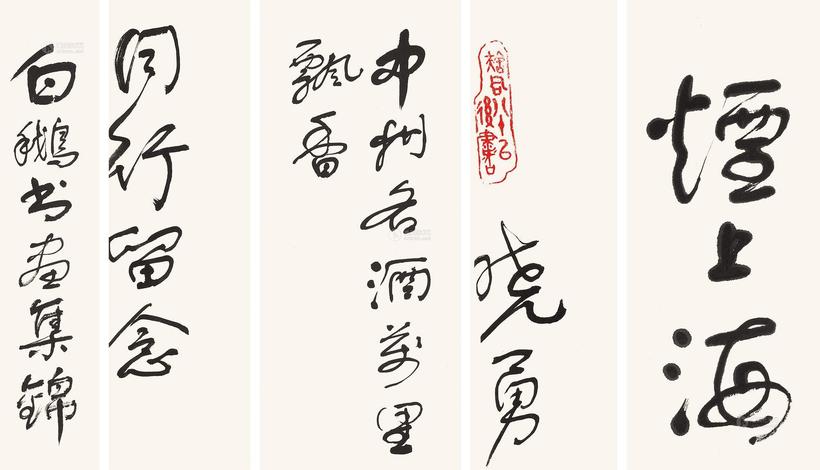 煙上海
晓勇
中州名酒萬里
飄香
同行留念
白鵝书画集錦